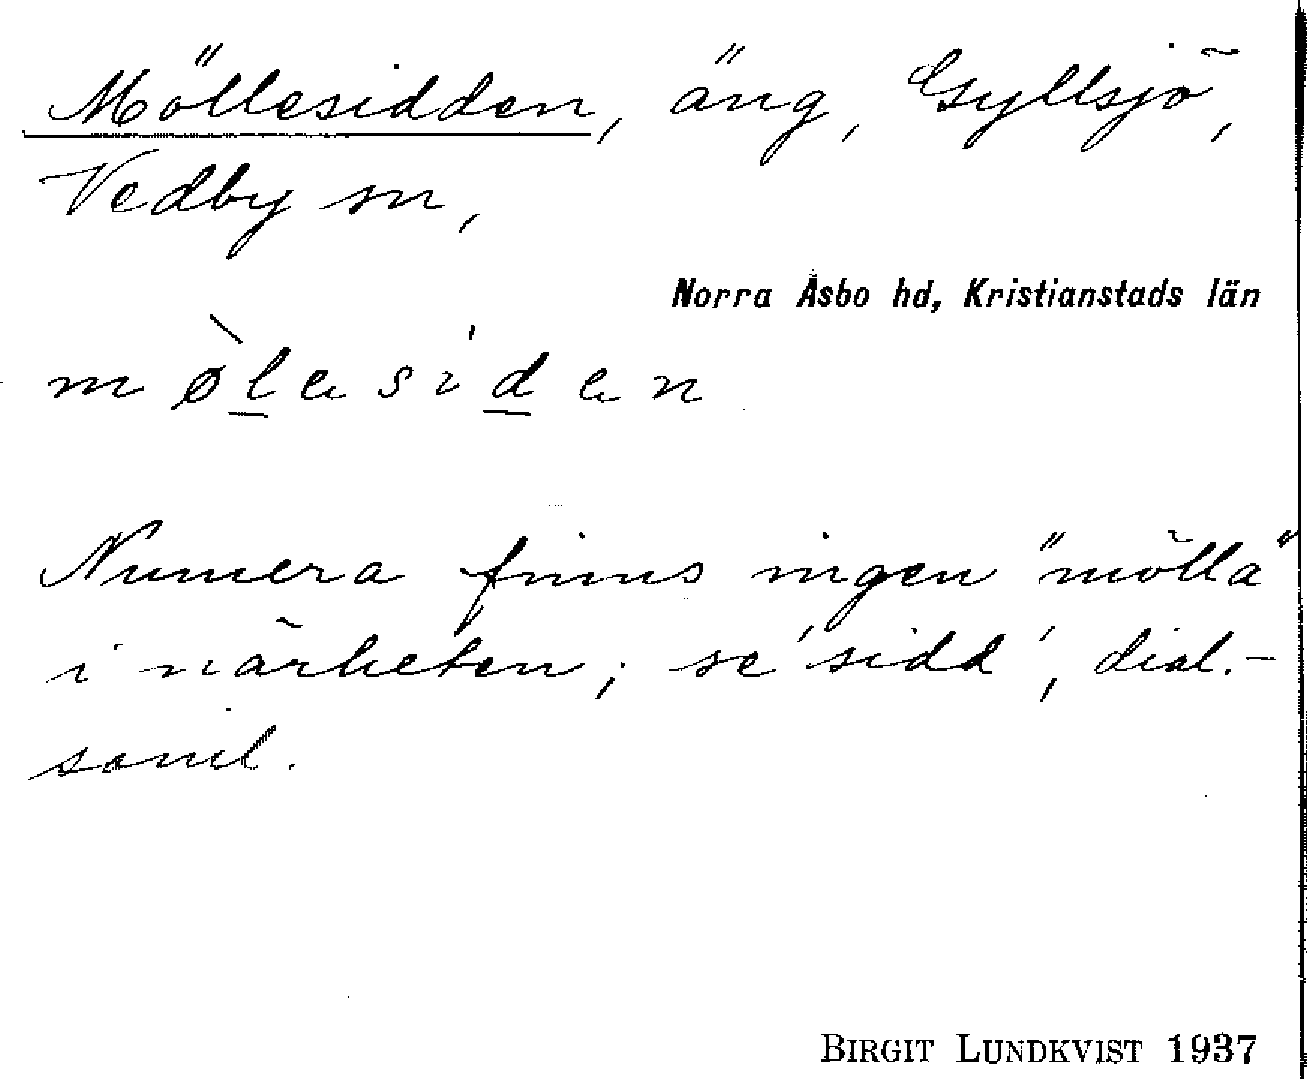 Möllesidden, äng, Gyllsjö,
Vedby sn,
Norra Åsbo hd, Kristianstads län
mø̀lesiden
Numera finns ingen "mölla"
i närheten; se 'sidd', dial.-
saml.
BIRGIT LUNDKVIST 1937